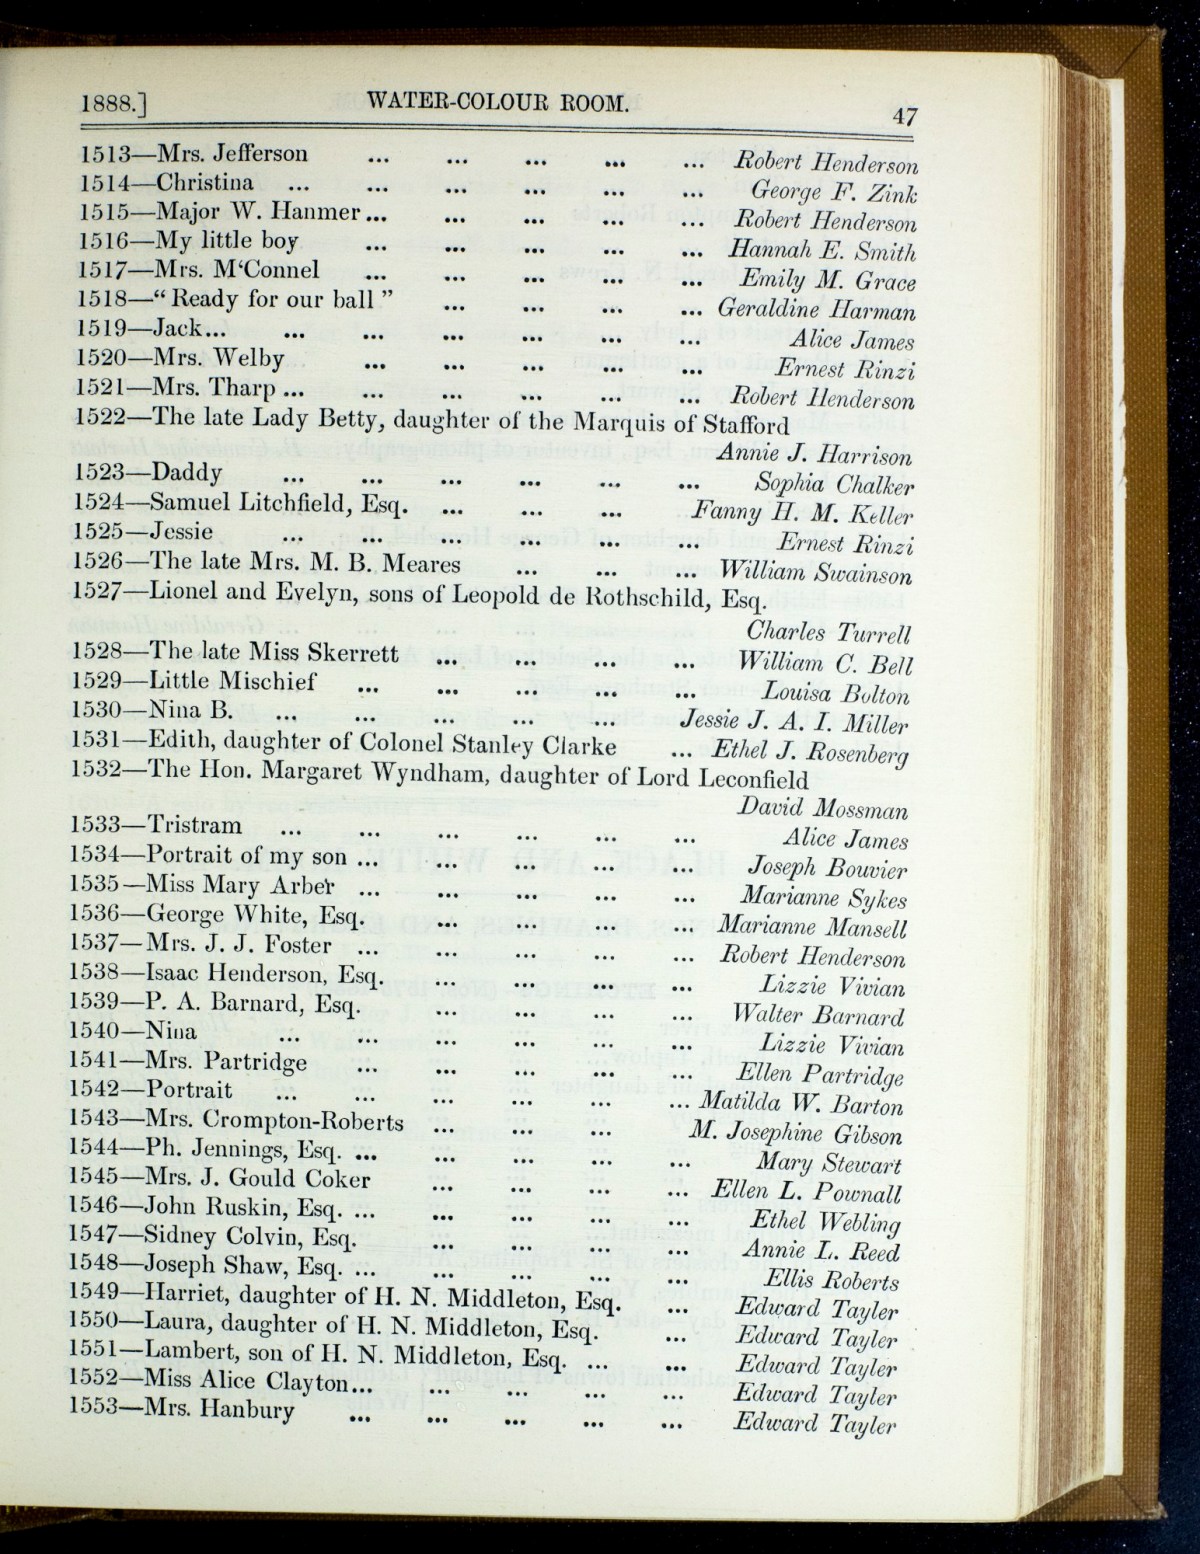 1888.] WATER-COLOUR ROOM. 47
1513—Mrs. Jefferson ... ... ... ... ... Robert Henderson
1514—Christina ... ... ... ... ... ... George F. Zink
1515—Major W. Hanmer... ... ... ... ... Robert Henderson
1516—My little boy ... ... ... ... ... Hannah E. Smith
1517—Mrs. M‘Connel ... ... ... ... ... Emily M. Grace
1518—“Ready for our ball” ... ... ... ... Geraldine Harman
1519—Jack... ... ... ... ... ... ... Alice James
1520—Mrs. Welby ... ... ... ... ... Ernest Rinzi
1521—Mrs. Tharp ... ... ... ... ... ... Robert Henderson
1522—The late Lady Betty, daughter of the Marquis of Stafford
Annie J. Harrison
1523—Daddy ... ... ... ... ... ... Sophia Chalker
1524—Samuel Litchfield, Esq. ... ... ... Fanny H. M. Keller
1525—Jessie ... ... ... ... ... ... Ernest Rinzi
1526—The late Mrs. M. B. Meares ... ... ... William Swainson
1527—Lionel and Evelyn, sons of Leopold de Rothschild, Esq.
Charles Turrell
1528—The late Miss Skerrett ... ... ... ... William C. Bell
1529—Little Mischief ... ... ... ... ... Louisa Bolton
1530—Nina B. ... ... ... ... ... Jessie J. A. I. Miller
1531—Edith, daughter of Colonel Stanley Clarke ... Ethel J. Rosenberg
1532—The Hon. Margaret Wyndham, daughter of Lord Leconfield
David Mossman
1533—Tristram ... ... ... ... ... ... Alice James
1534—Portrait of my son ... ... ... ... ... Joseph Bouvier
1535—Miss Mary Arber ... ... ... ... ... Marianne Sykes
1536—George White, Esq. ... ... ... ... Marianne Mansell
1537—Mrs. J. J. Foster ... ... ... ... ... Robert Henderson
1538—Isaac Henderson, Esq. ... ... ... ... Lizzie Vivian
1539—P. A. Barnard, Esq. ... ... ... ... Walter Barnard
1540—Nina ... ... ... ... ... ... Lizzie Vivian
1541—Mrs. Partridge ... ... ... ... ... Ellen Partridge
1542—Portrait ... ... ... ... ... ... Matilda W. Barton
1543—Mrs. Crompton-Roberts ... ... ... M. Josephine Gibson
1544—Ph. Jennings, Esq. ... ... ... ... ... Mary Stewart
1545—Mrs. J. Gould Coker ... ... ... ... Ellen L. Pownall
1546—John Ruskin, Esq. ... ... ... ... ... Ethel Webling
1547—Sidney Colvin, Esq. ... ... ... ... Annie L. Reed
1548—Joseph Shaw, Esq. ... ... ... ... ... Ellis Roberts
1549—Harriet, daughter of H. N. Middleton, Esq. ... Edward Tayler
1550—Laura, daughter of H. N. Middleton, Esq. ... Edward Tayler
1551—Lambert, son of H. N. Middleton, Esq. ... ... Edward Tayler
1552—Miss Alice Clayton... ... ... ... ... Edward Tayler
1553—Mrs. Hanbury ... ... ... ... ... Edward Tayler